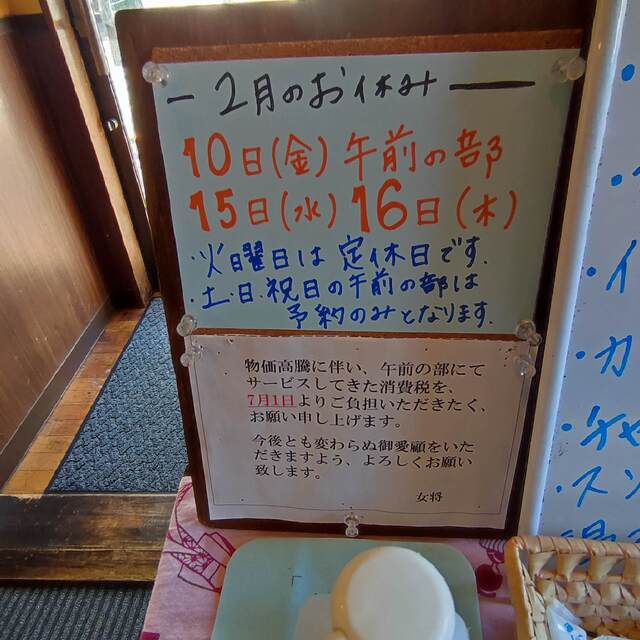 2月のお休み
10日(金)午前の部
15日(水)16日(木)
・火曜日は定休日です.
・土.日.祝日の午前の部は
予約のみとなります.
物価高騰に伴い、午前の部にて
サービスしてきた消費税を、
7月1日よりご負担いただきたく、
お願い申し上げます。
今後とも変わらぬ御愛顧をいた
だきますよう、よろしくお願い
致します。
女将
・イ
・カ
・チャ
・スン